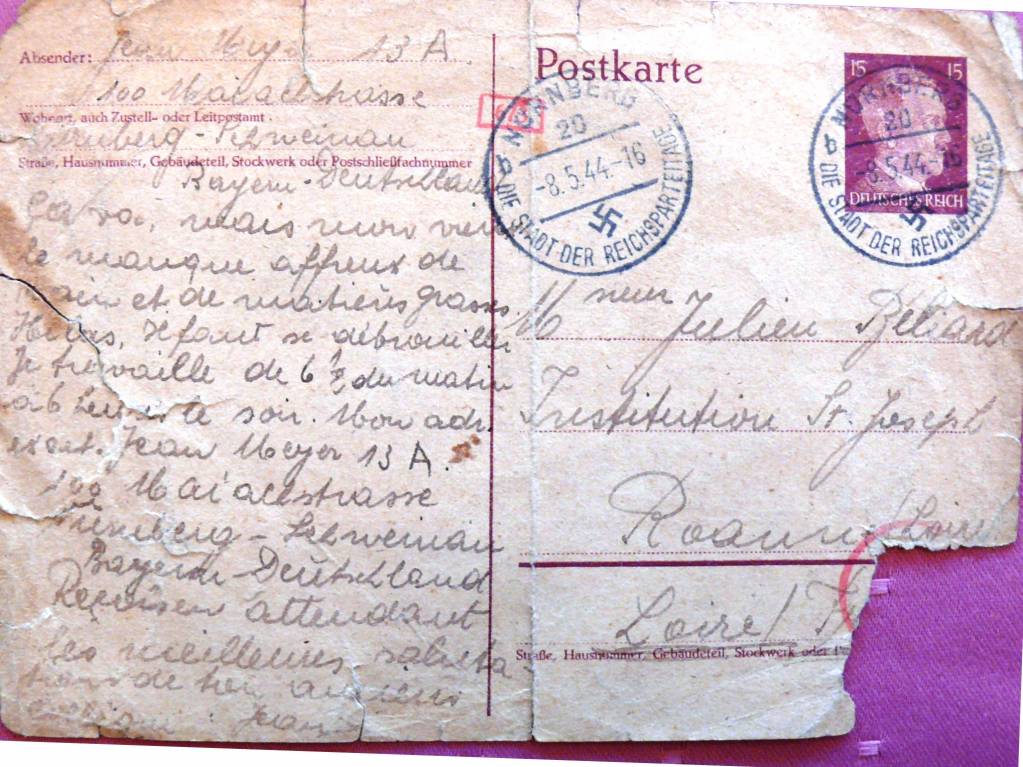 Absender: Jean Meyer 13 A
100 Maiachstrasse
Wohnort, auch Zustell- oder Leitpostamt
Nürnberg - Schweinau
Straße, Hausnummer, Gebäudeteil, Stockwerk oder Postschließfachnummer
Bayern-Deutschland
Ça va, mais
le manque affreux de
pain et de matières grasses
Il faut se débrouiller
Je travaille de 6 1/2 du matin
à 6 le soir. Mon adr.
Jean Meyer 13 A.
100 Maiachstrasse
Nürnberg - Schweinau
Bayern-Deutschland
attendant
les meilleures saluta
tions de ton ancien
Jean
Postkarte
15 15
DEUTSCHES REICH
NÜRNBERG
20
-8.5.44.-16
DIE STADT DER REICHSPARTEITAGE
NÜRNBERG
20
-8.5.44.-16
DIE STADT DER REICHSPARTEITAGE
Julien Béliard
Institution St. Joseph
Loire / F
Straße, Hausnummer, Gebäudeteil, Stockwerk oder